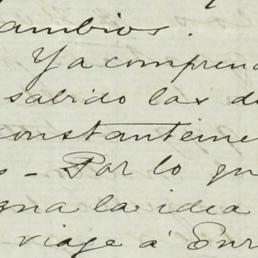 ambios.
Ya comprend
sabido las d
constanteme
s - Por lo qu
gna la idea
viage á Eur